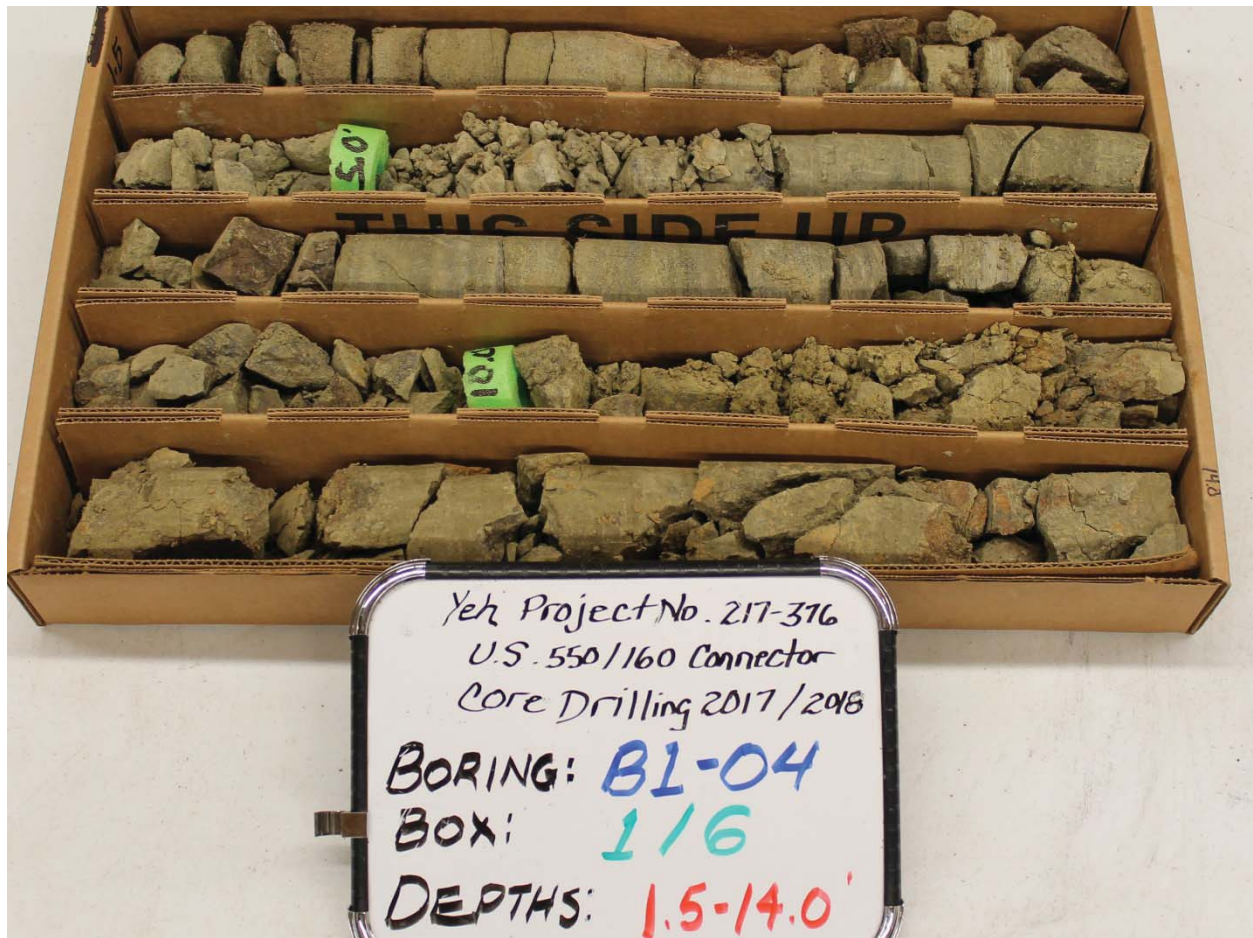 1.5
5.0'
THIS SIDE UP
10.0
14.8
Yeh Project No. 217-376
U.S. 550/160 Connector
Core Drilling 2017/2018
BORING: B1-04
BOX: 1/6
DEPTHS: 1.5-14.0'